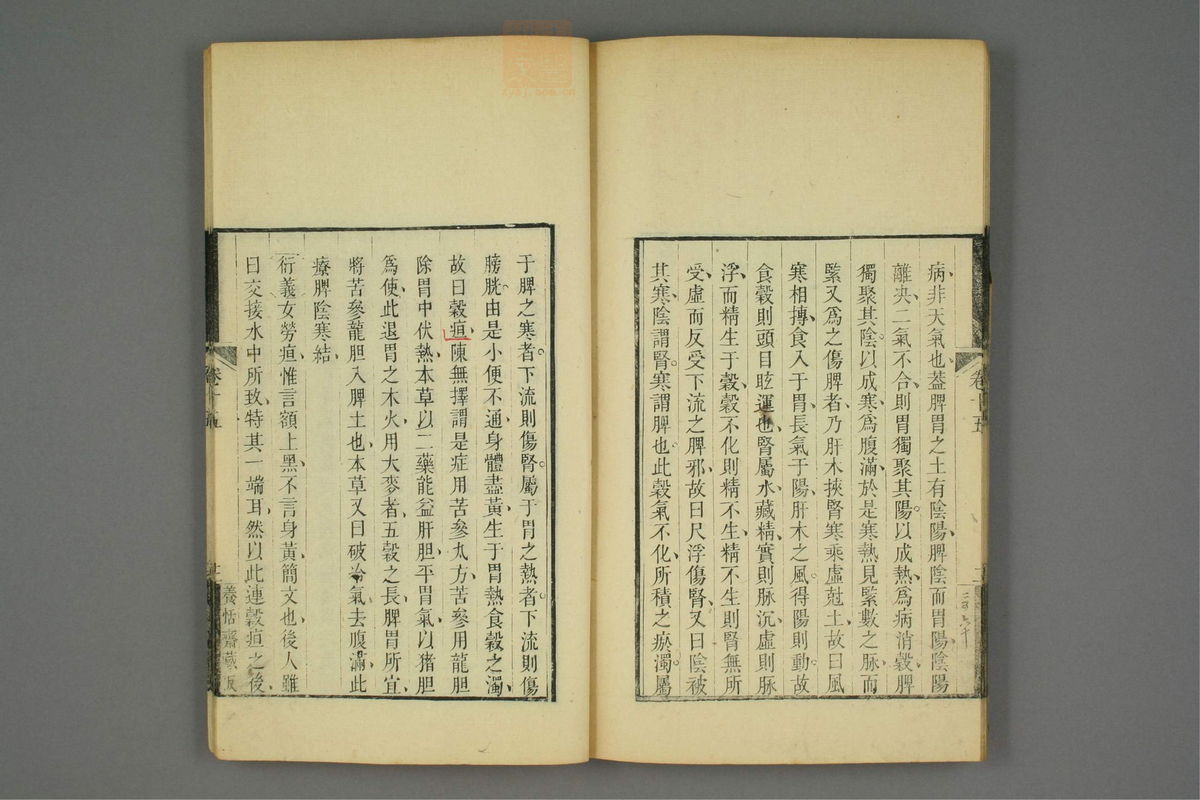 病非天氣也葢脾胃之土有陰陽脾陰而胃陽陰陽
離決二氣不合則胃獨聚其陽以成熱爲病消穀脾
獨聚其陰以成寒爲腹滿於是寒熱見緊數之脉而
緊又爲之傷脾者乃肝木挾腎寒乘虛尅土故曰風
寒相摶食入于胃長氣于陽肝木之風得陽則動故
食穀則頭目眩運也腎屬水藏精實則脉沉虛則脉
浮而精生于穀穀不化則精不生精不生則腎無所
受虛而反受下流之脾邪故曰尺浮傷腎又曰陰被
其寒陰謂腎寒謂脾也此穀氣不化所積之瘀濁屬
卷十五
于脾之寒者下流則傷腎屬于胃之熱者下流則傷
膀胱由是小便不通身體盡黃生于胃熱食穀之濁
故曰穀疸陳無擇謂是症用苦參丸方苦參用龍胆
除胃中伏熱本草以二藥能益肝胆平胃氣以猪胆
爲使此退胃之木火用大麥者五穀之長脾胃所宜
將苦參龍胆入脾土也本草又曰破冷氣去腹滿此
療脾陰寒結
衍義女勞疸惟言額上黑不言身黃簡文也後人雖
曰交接水中所致特其一端耳然以此連穀疸之後
卷十五
養恬齋藏版